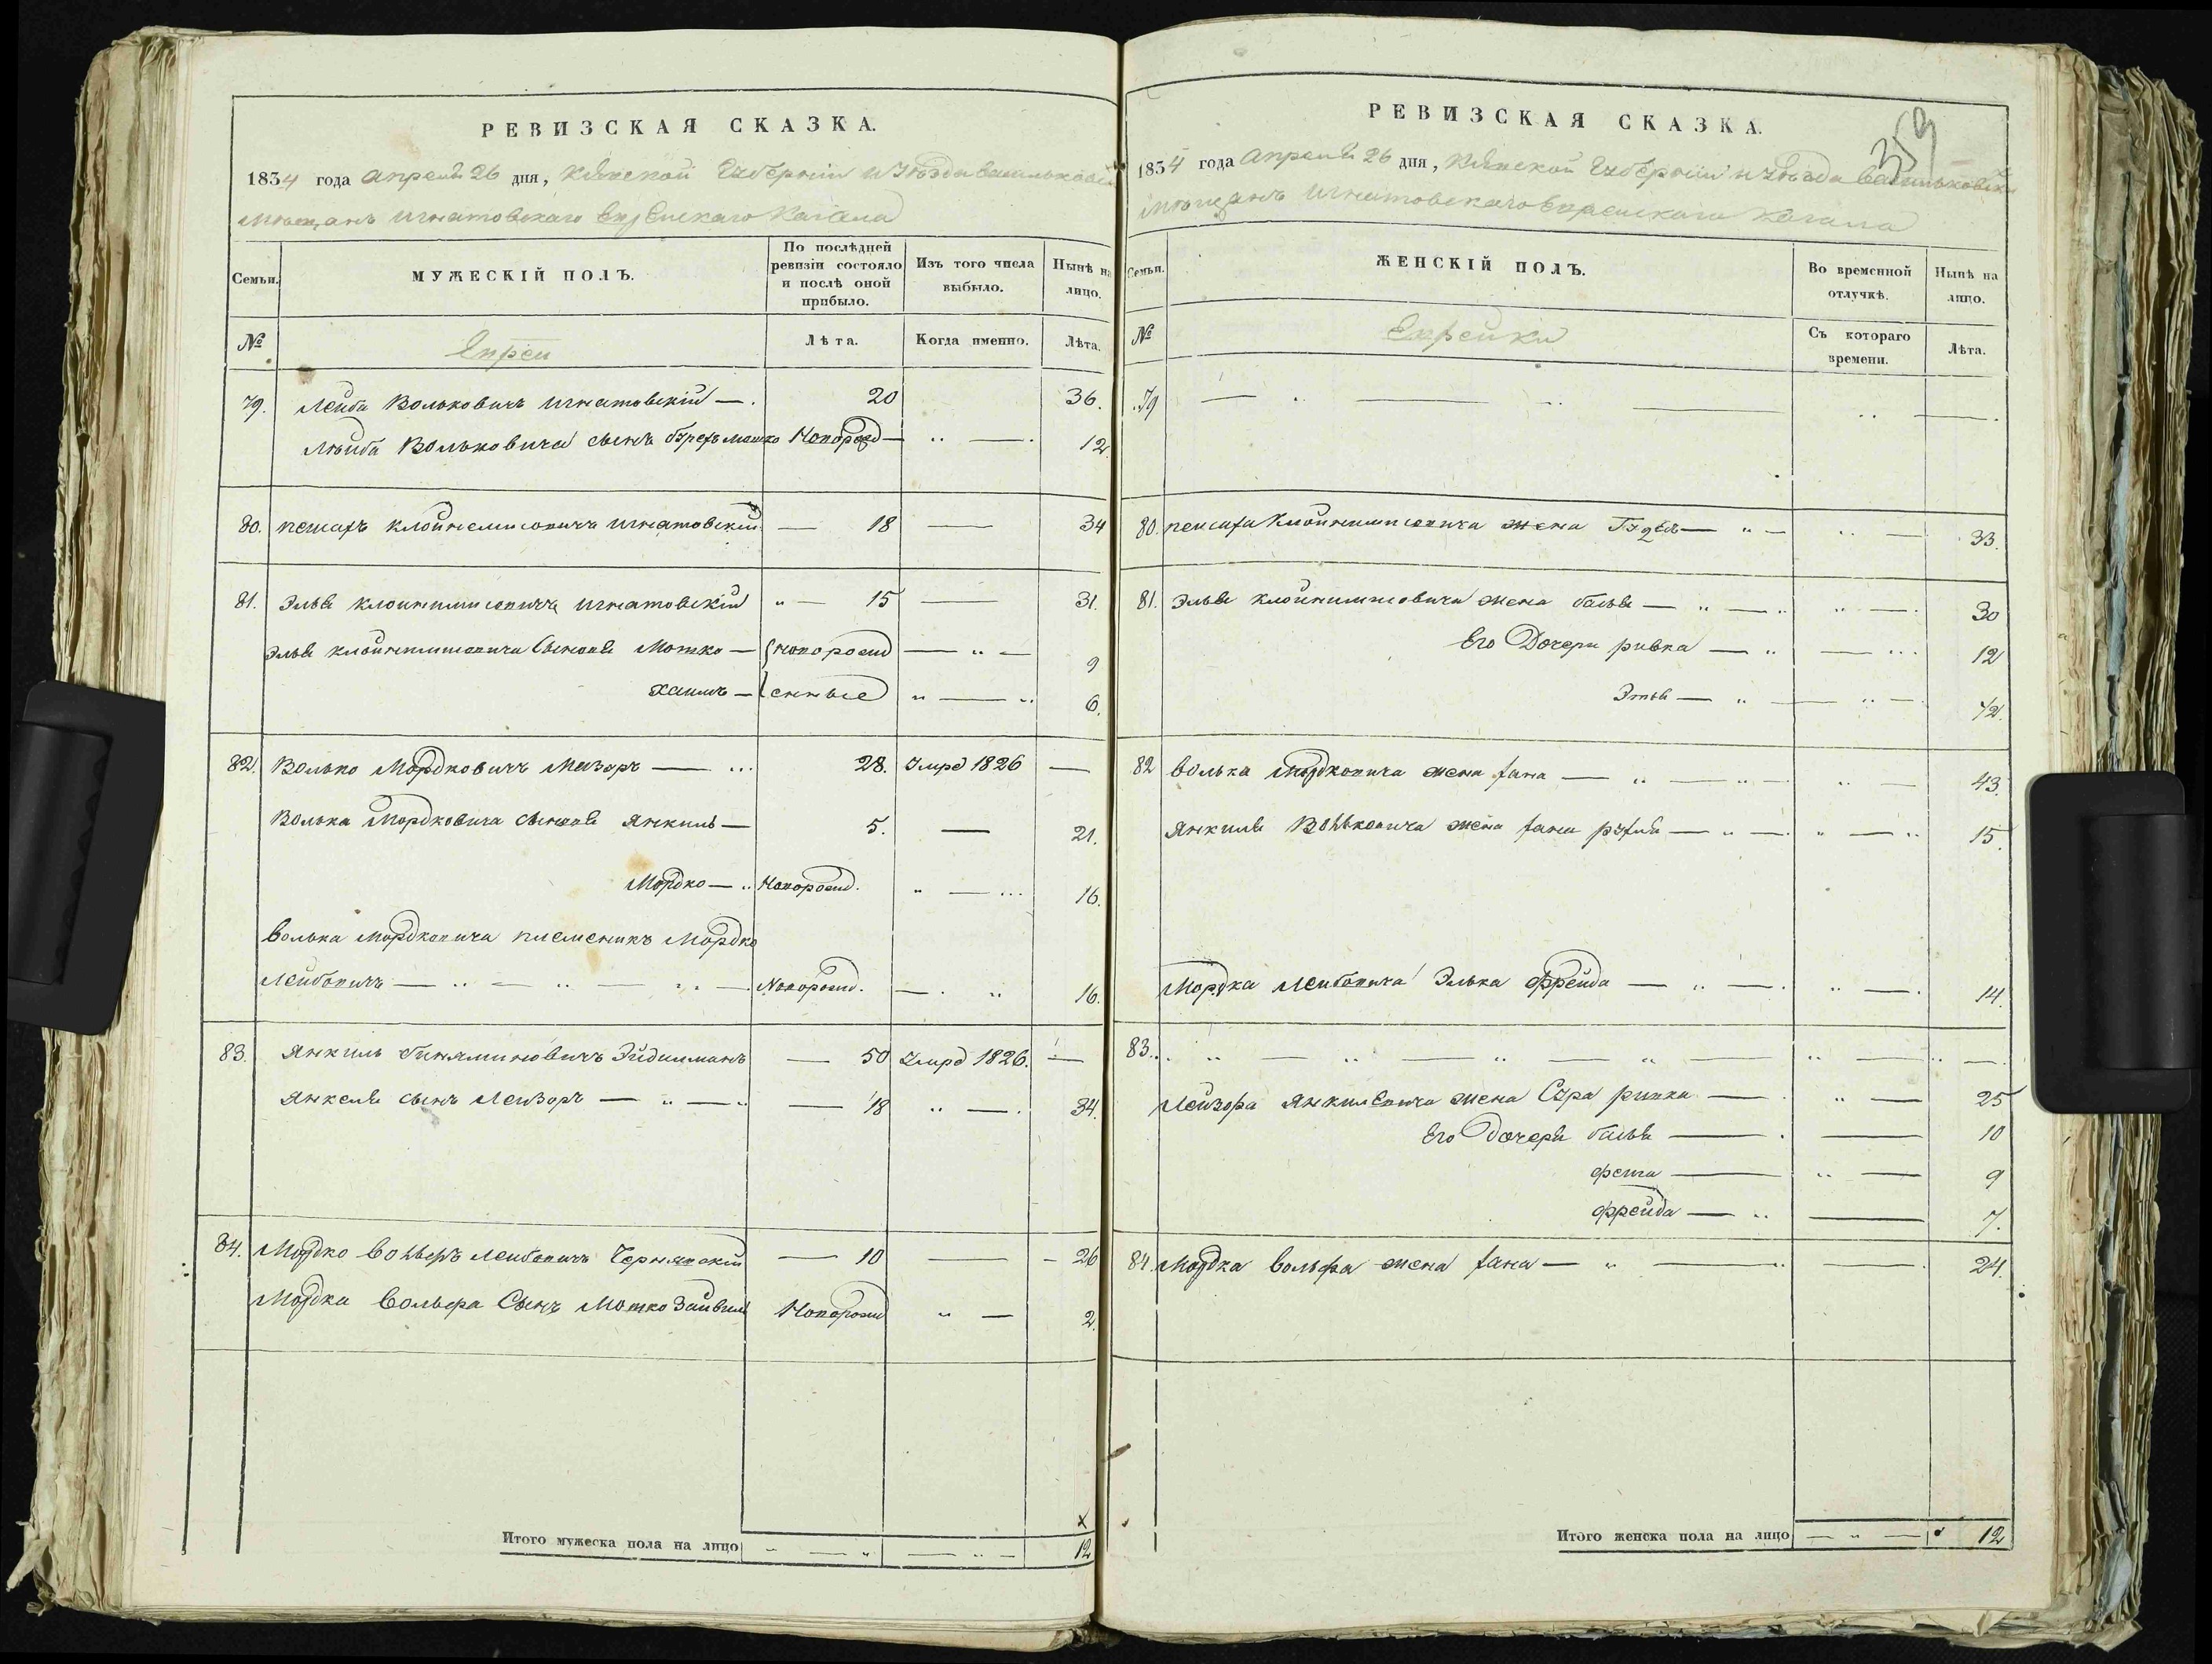 РЕВИЗСКАЯ СКАЗКА.
1834 года Апреля 26 дня, Кіевской Губерніи и уѣзда Васильковскаго
Мѣщанъ Игнатовскаго Еврейскаго Кагала
Семьи.
МУЖЕСКІЙ ПОЛЪ.
По послѣдней ревизіи состояло и послѣ оной прибыло.
Изъ того числа выбыло.
Нынѣ на лицо.
№
Евреи
Лѣта.
Когда именно.
Лѣта.
79. Лейба Вольковичъ Игнатовскій — 20 36.
Лѣйба Вольковича сынъ Мошко Новорожд — 12
80. Пейсахъ Клойнемисовичъ Игнатовскій — 18 — 34
81. Эльв Клоинимисовичъ Игнатовскій — 15 — 31.
Эльв Клойнимисовича Сыновя Мотко — новорожд — 9
Хаимъ — енные — 6.
82. Волько Мордковичъ Мазоръ — 28. Умрд 1826 —
Волька Мордковича Сыновя Янкиль — 5. — 21.
Мордко — Новорожд. — 16.
Волька Мордковича племеникъ Мордко
Лейбовичъ — Новорожд. — 16.
83. Янкиль Биняминовичъ Эйдилманъ — 50 Умрд 1826. —
Янкеля сынъ Лейзоръ — 18 — 34.
84. Мордко Вольфъ Лейбовичъ Чернявскій — 10 — 26
Мордка Вольфа Сынъ Мотко Зайвиль Новорожд — 2.
Итого мужеска пола на лицо — 12
359
РЕВИЗСКАЯ СКАЗКА.
1834 года Апреля 26 дня, Кіевской Губерніи и уѣзда Васильковска
Мѣщанъ Игнатовскаго Еврейскаго Кагала
Семьи.
ЖЕНСКІЙ ПОЛЪ.
Во временной отлучкѣ.
Нынѣ на лицо.
№
Еврейки
Съ котораго времени.
Лѣта.
79 —
80. Пейсаха Клойнимисовича жена — 33.
81. Эльв Клойнимисовича жена Бальв — 30
Его Дочери Ривка — 12
Этля — 1/2.
82 Волька Мордковича жена Хана — 43.
Янкиля Вольковича жена Хана Рухля — 15.
Мордка Лейбовича Элька Фрейда — 14.
83. —
Лейзора Янкилевича жена Сура Ривка — 25
Его Дочеря — 10
Фейга — 9
Фрейда — 7.
84. Мордка Вольфа жена Хана — 24.
Итого женска пола на лицо — 12